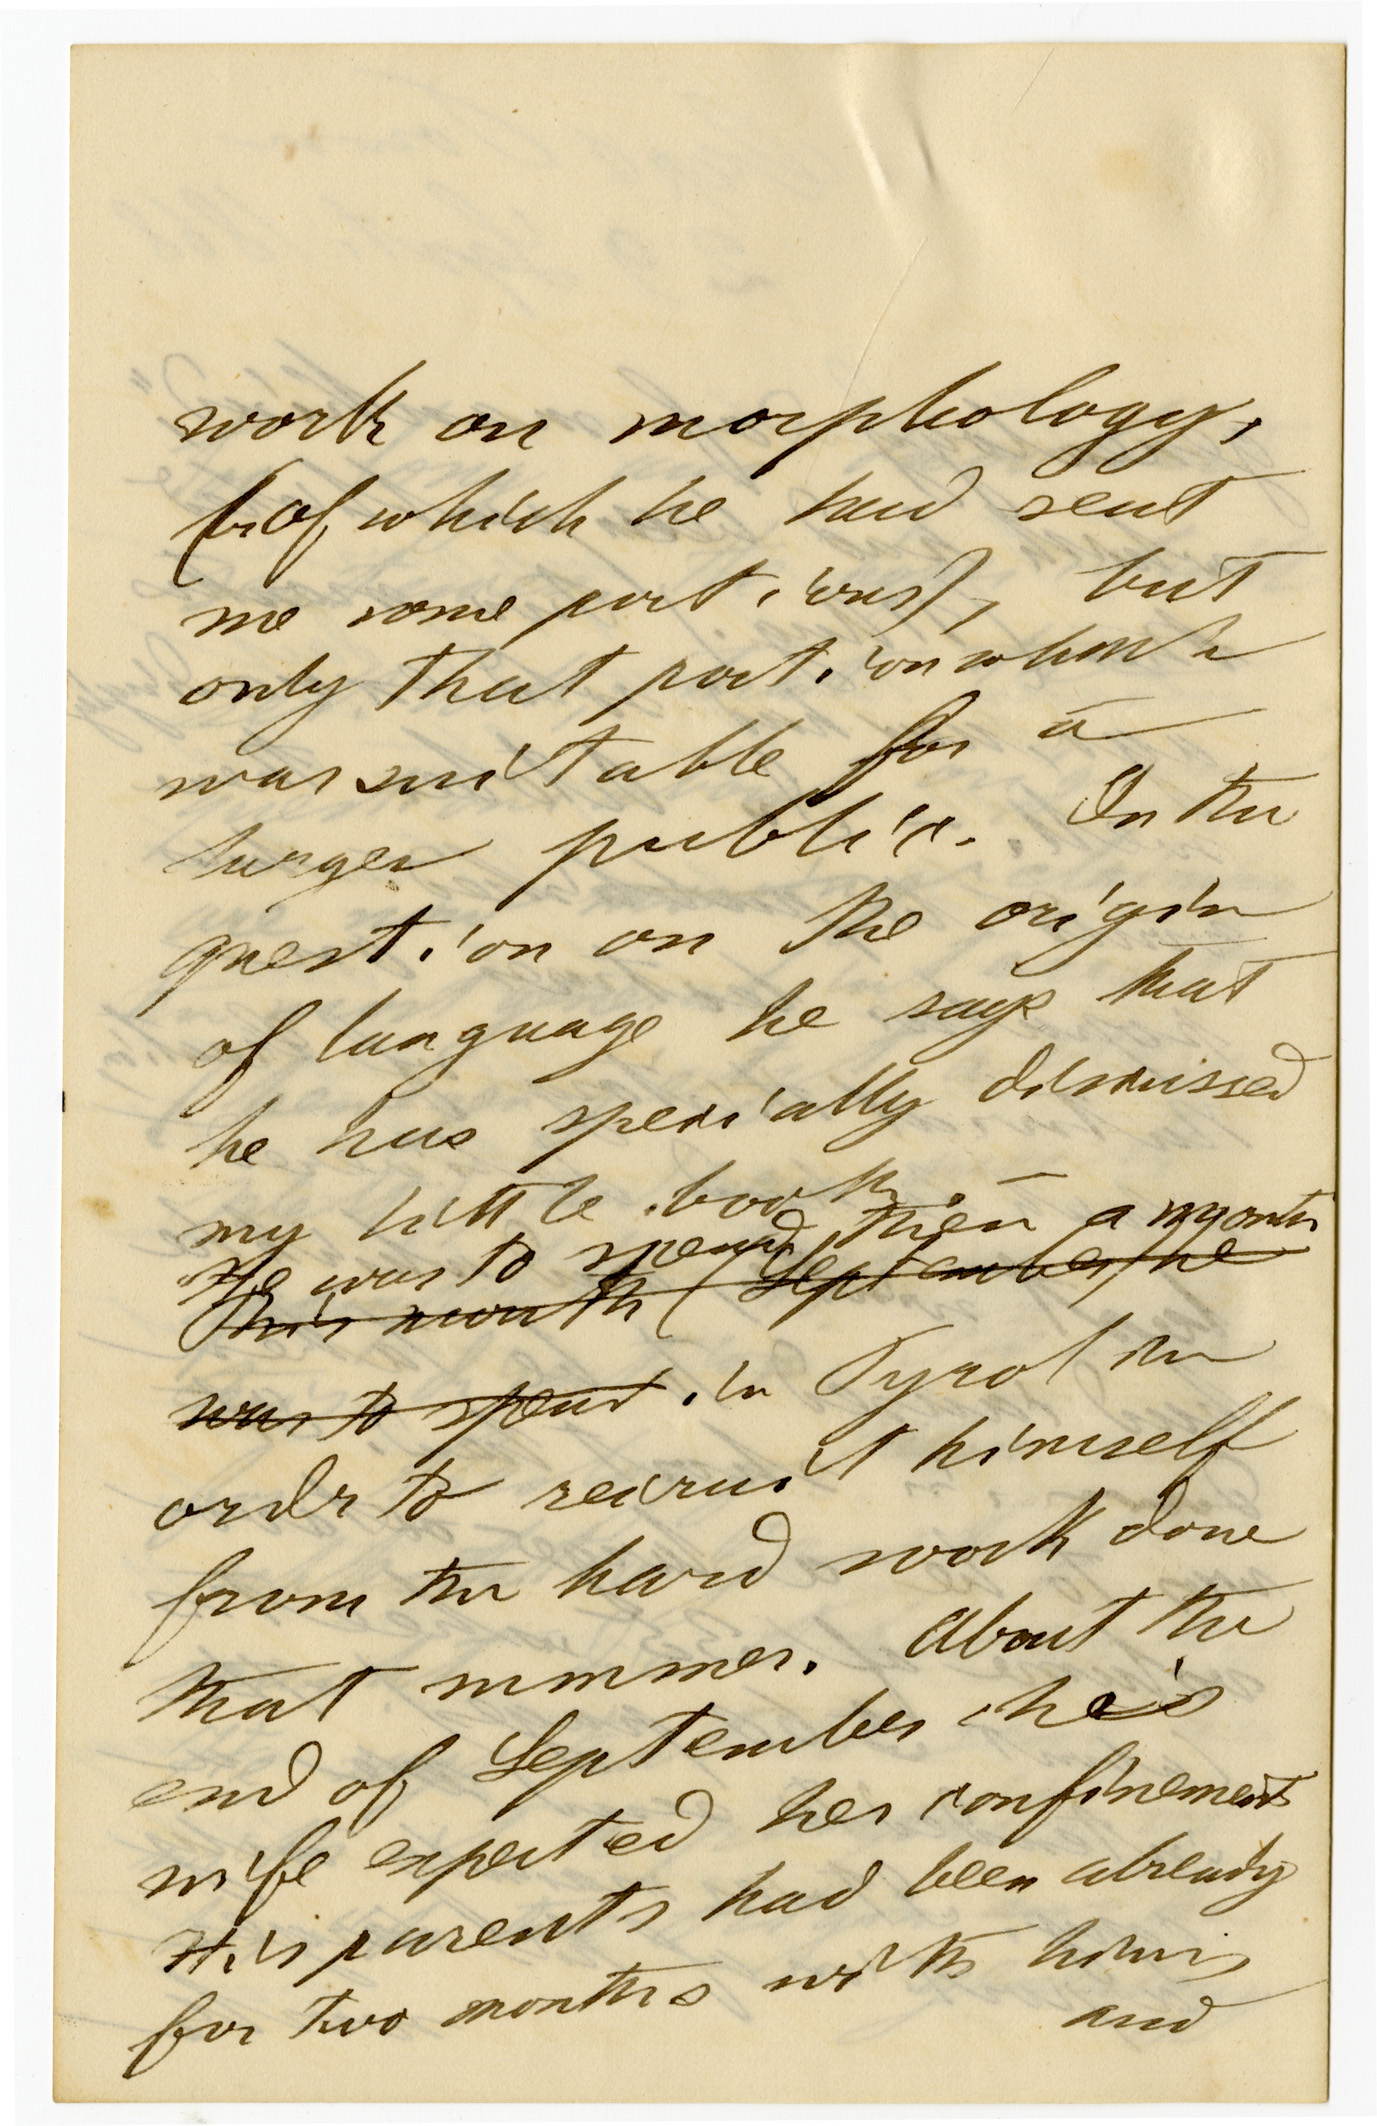 work on morphology,
(of which he had sent
me some portions), but
only that portion which
was suitable for a
larger public. In the
question on the origin
of language he says that
he has specially discussed
my little book.
He was to spend then a month
This month (September) he
was to spend in Tyrol in
order to recruit himself
from the hard work done
that summer. About the
end of September his
wife expected her confinement
His parents had been already
for two months with him,
and